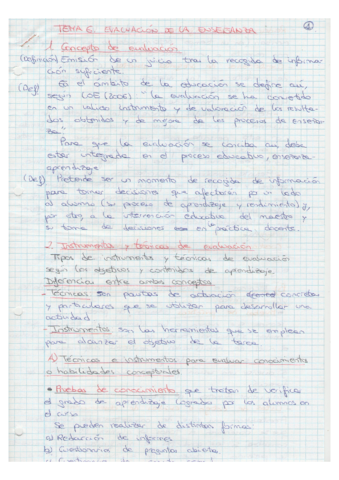 TEMA 6. EVALUACIÓN DE LA ENSEÑANZA
1. Concepto de evaluación
(Definición) Emisión de un juicio tras la recogida de información suficiente.
En el ámbito de la educación se define así,
(Def) según LOE (2006) "la evaluación se ha convertido
en un valioso instrumento y de valoración de los resultados
obtenidos y de mejora de los procesos de enseñanza"
Para que la evaluación se conciba así debe
estar integrada en el proceso educativo, enseñanza-
aprendizaje.
(Def) Pretende ser un momento de recogida de información
para tomar decisiones que afectarán por un lado
al alumno (su proceso de aprendizaje y rendimiento) y,
por otro, a la intervención educativa del maestro y
su toma de decisiones en práctica docente.
2. Instrumentos y técnicas de evaluación
Tipos de instrumentos y técnicas de evaluación
según los objetivos y contenidos de aprendizaje.
Diferencias entre ambos conceptos
- Técnicas son pautas de actuación concretas
y particulares que se utilizan para desarrollar una
actividad
- Instrumentos son las herramientas que se emplean
para alcanzar el objetivo de la tarea
A) Técnicas e instrumentos para evaluar conocimientos
o habilidades conceptuales
• Pruebas de conocimiento que tratan de verificar
el grado de aprendizaje logrados por los alumnos en
el curso
Se pueden realizar de distintas formas
a) Redacción de informes
b) Cuestionario de preguntas abiertas